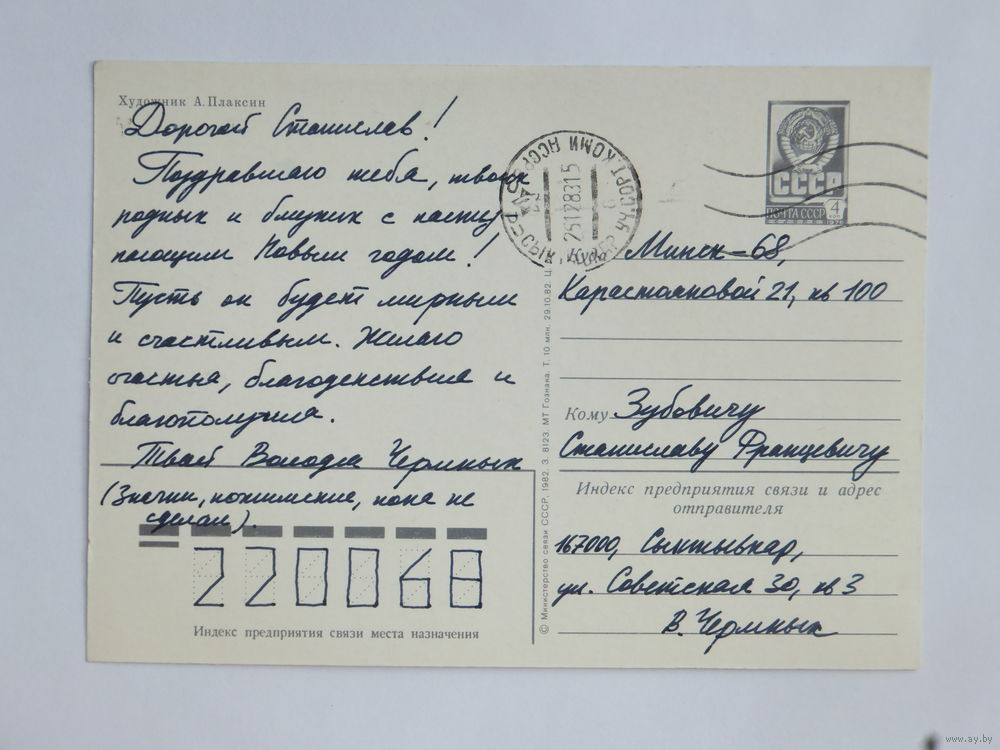 Художник А. Плаксин
Дорогой Станислав!
Поздравляю тебя, твоих
родных и близких с насту
пающим Новым годом!
Пусть он будет мирным
и счастливым. Желаю
счастья, благоденствия и
благополучия.
Твой Володя Черных
(Значки, потиписские, пока не
сделал).
220068
Индекс предприятия связи места назначения
© Министерство связи СССР, 1982. З. 8123. МТ Гознака. Т. 10 млн. 29.10.82. Ц.
СССР
ПОЧТА СССР
4
КОП
КОМИ АССР
25128315
Куда Минск-68,
Карастояновой 21, кв 100
Кому Зубовичу
Станиславу Францевичу
Индекс предприятия связи и адрес
отправителя
167000, Сыктывкар,
ул. Советская 30, кв 3
В. Черных
www.ay.by